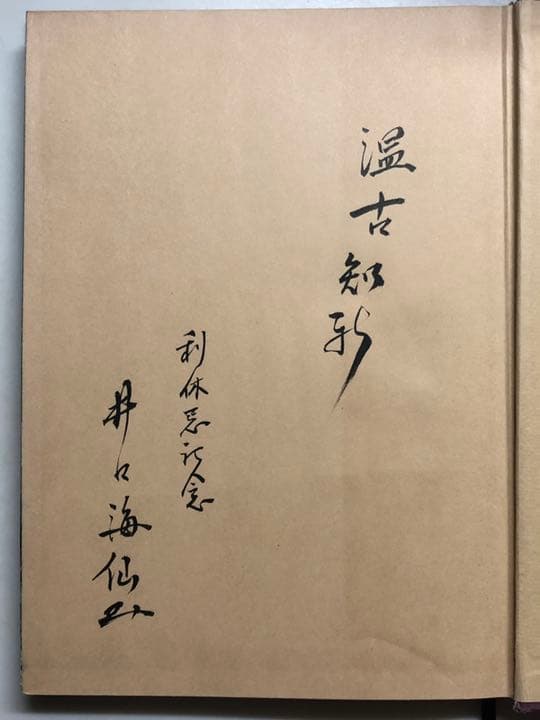 温古知新
利休忌記念
井口海仙